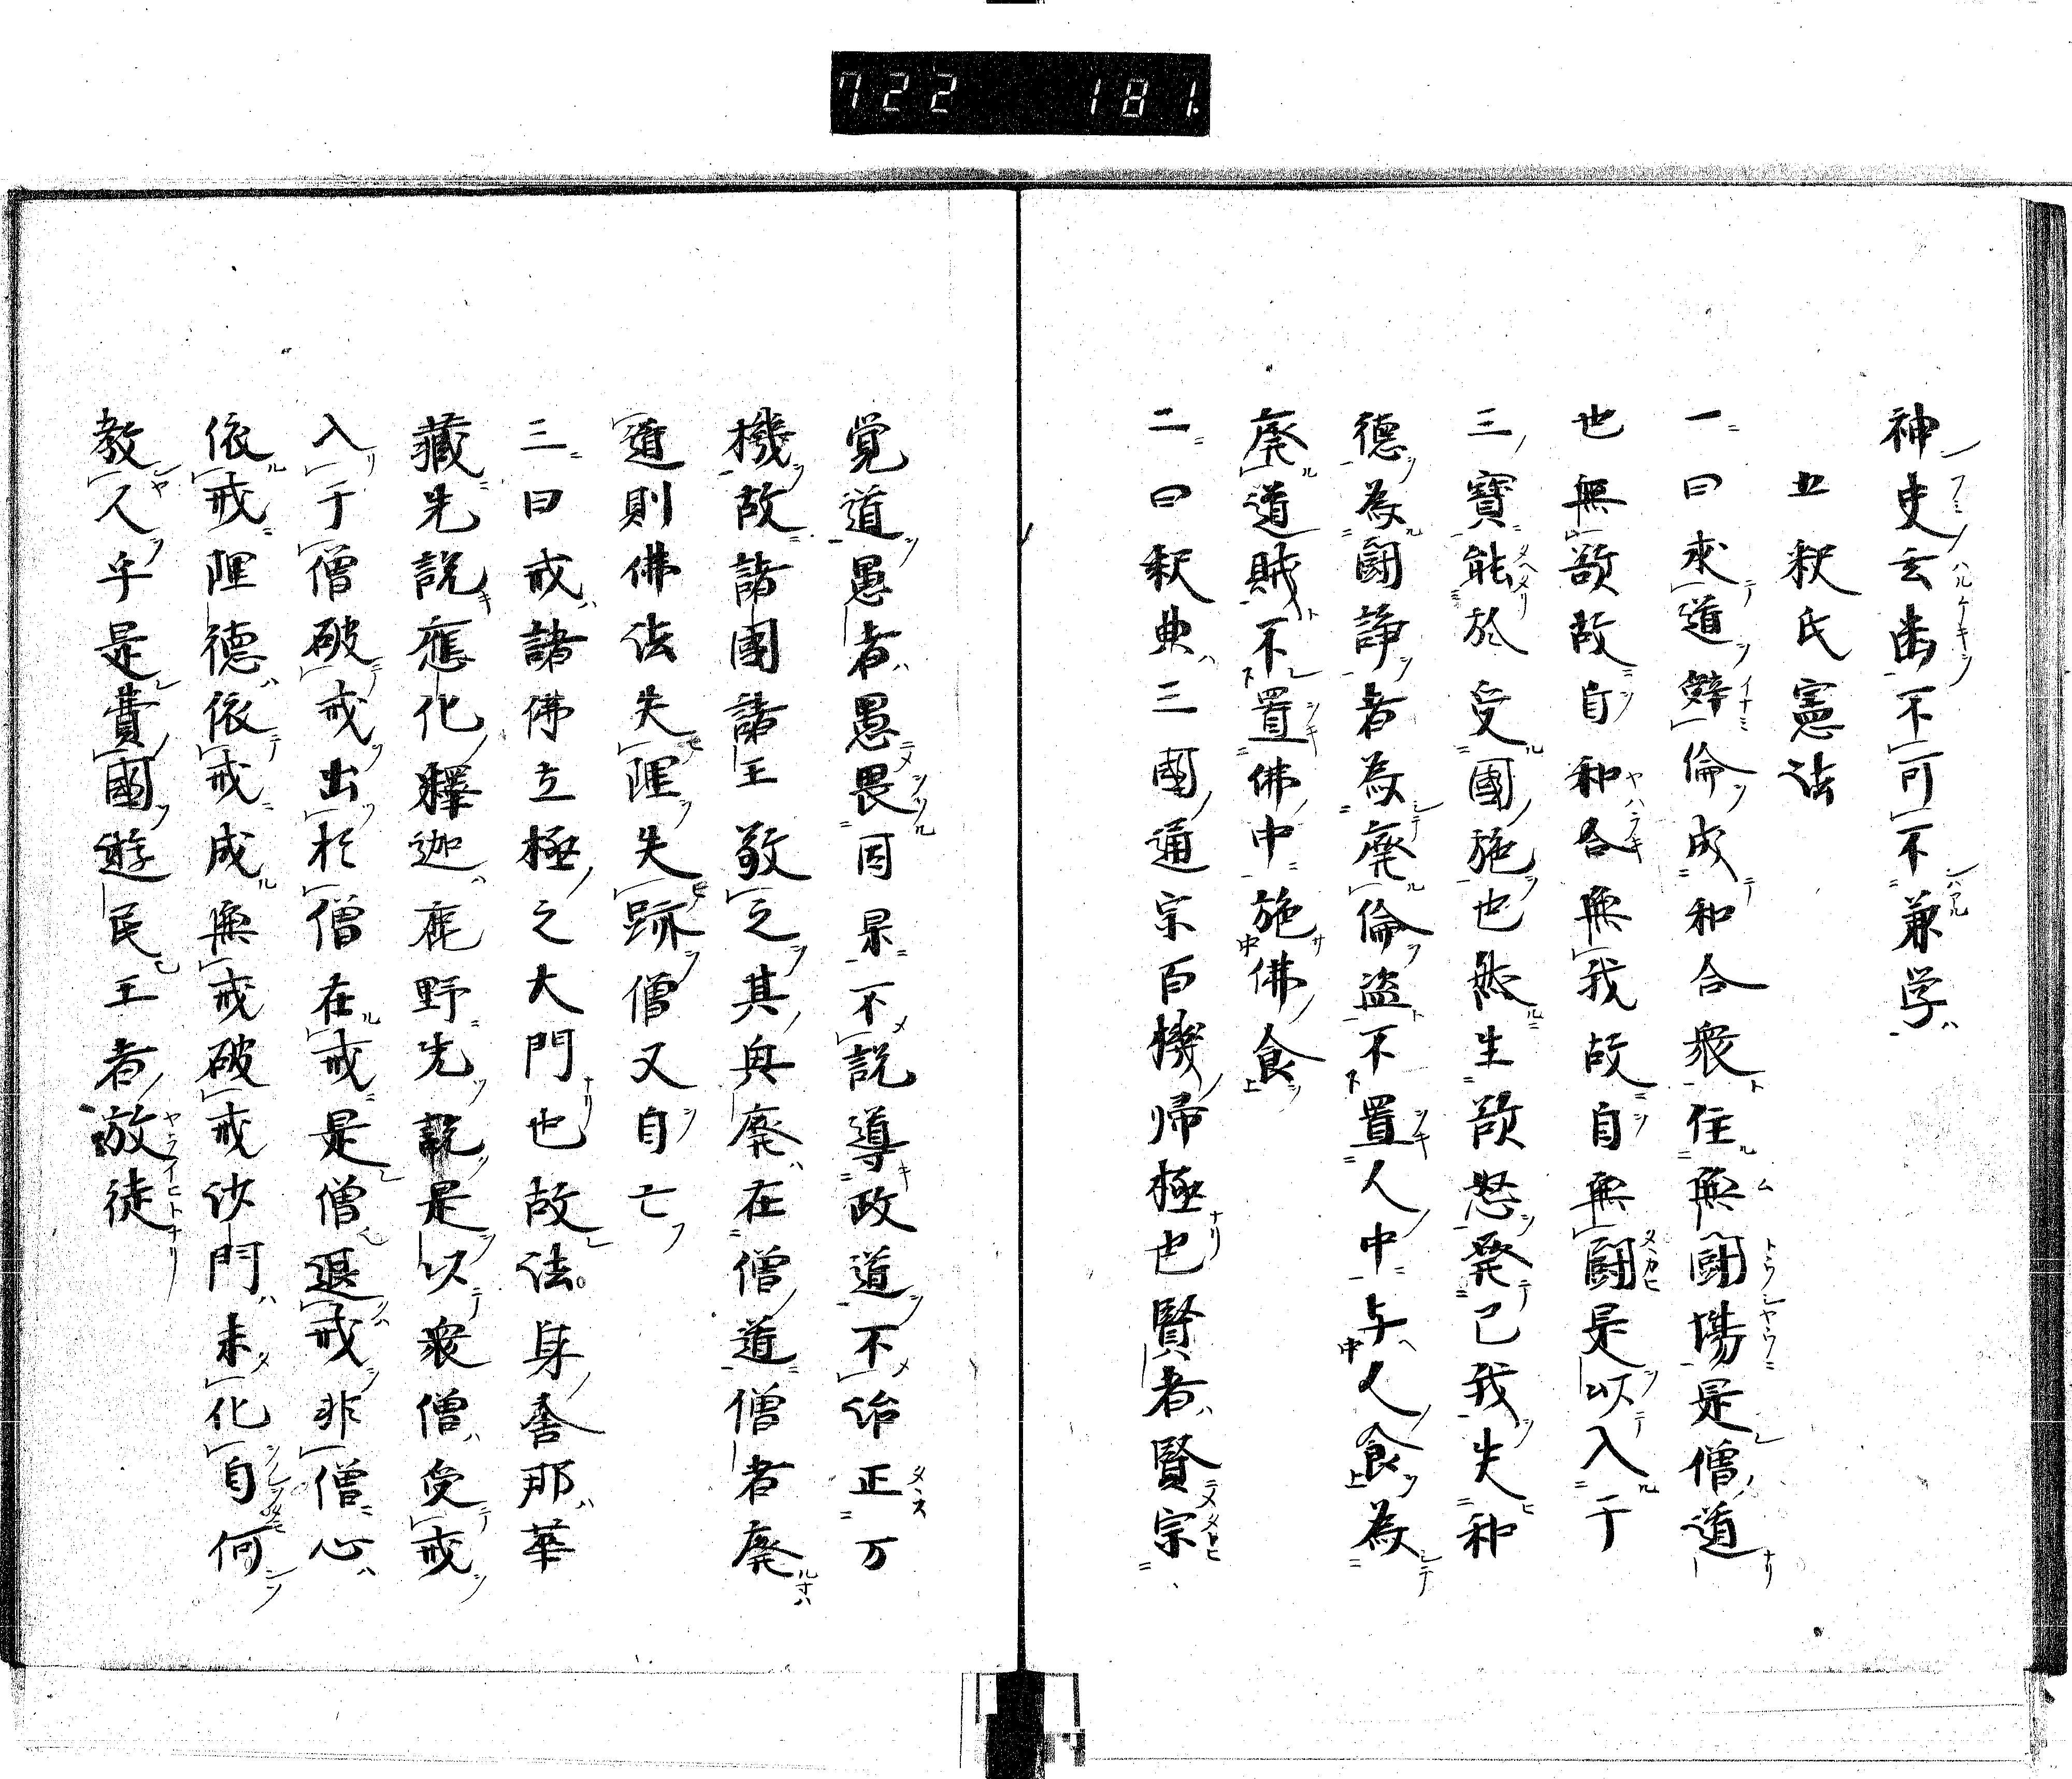 722 181
神史玄幽不可不兼学
五釈氏憲法
一曰求道辞倫成和合衆住無闘場是僧道
也無欲故自和合無我故自無闘是以入于
三寶能於受國施也然生欲怒発己我失和
德為闘諍者為廃倫盗不置人中与人食為
廃道賊不置佛中施佛食
二曰釈典三國通宗百機帰極也賢者賢宗
覚道愚者愚畏因果不説導政道不治正万
機故諸國諸王敬之其興廃在僧道僧者廃
道則佛法失理失跡僧又自亡
三曰戒諸佛立極之大門也故法身舎那華
藏先説應化釋迦鹿野先説是以衆僧受戒
入于僧破戒出於僧在戒是僧退戒非僧心
依戒理德依戒成無戒破戒沙門未化自何
教人乎是費國遊民王者放徒